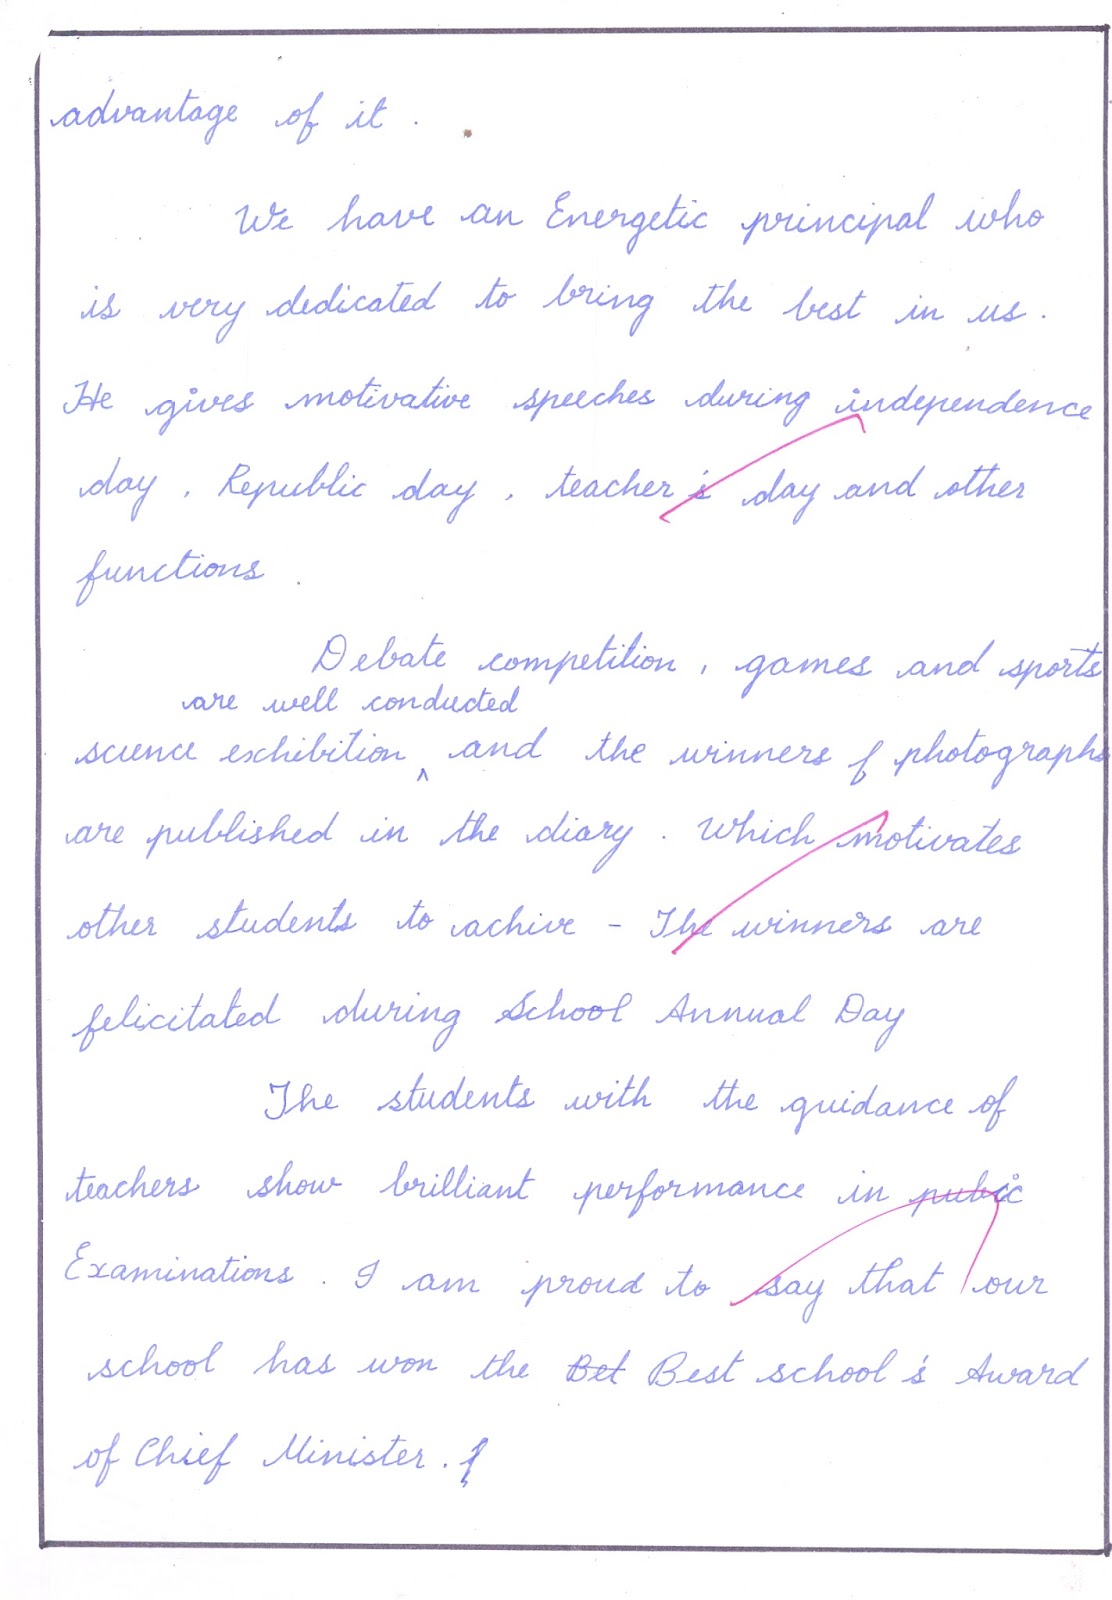 advantage of it .
We have an Energetic principal who
is very dedicated to bring the best in us .
He gives motivative speeches during independence
day , Republic day , teacher's day and other
functions .
Debate competition , games and sports
are well conducted
science exhibition ^ and the winners of photographs
are published in the diary . Which motivates
other students to achive - The winners are
felicitated during School Annual Day
The students with the guidance of
teachers show brilliant performance in pubic
Examinations . I am proud to say that our
school has won the Bet Best school's Award
of Chief Minister .